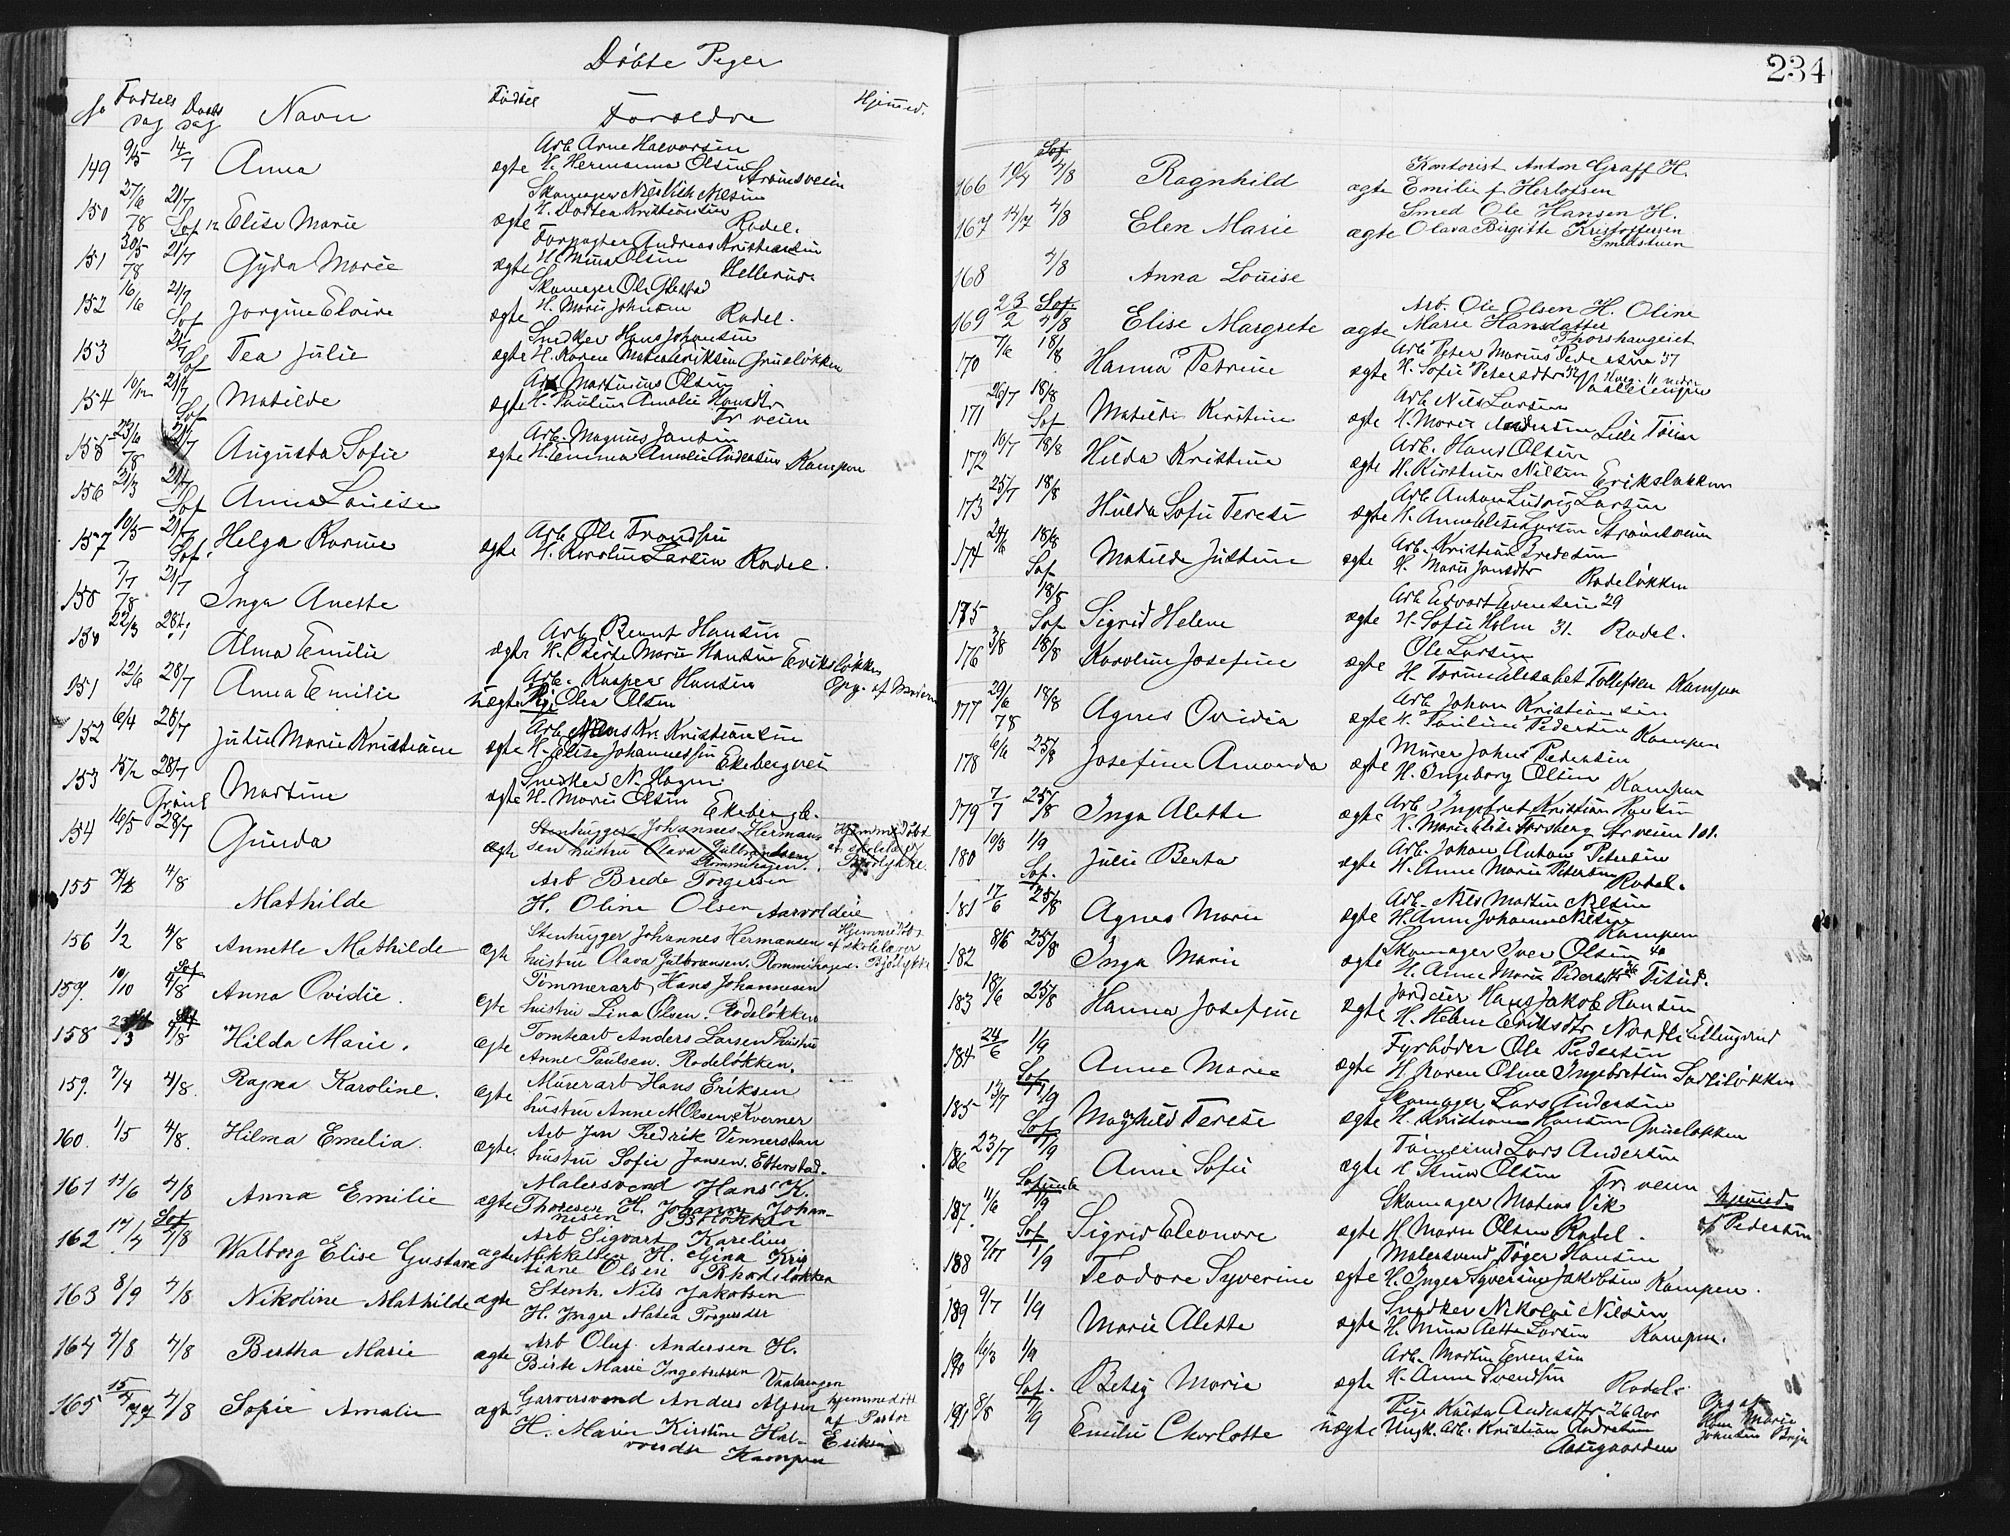 Døbte Piger
No Fødsels Dag Daabs Dag Navn Fødsel Forældre Hjemmed.
149 9/5 14/7 Anna ægte Arb. Arne Halvorsen
H. Hermanna Olsen Strømsveien
150 27/6 78 21/7 Elise Marie ægte Skomager Nils Vilh Nilsen
H. Dortea Kristiansen Rodel.
151 30/5 78 21/7 Gyda Marie ægte Forpagter Andreas Kristiansen
H. Mina Olsen Hellerud.
152 16/6 21/7 Jorgine Elvire ægte Skomager Ole Glestad
H. Marie Johnsen Rodel.
153 Sof 21/7 Tea Julie ægte Snedker Hans Johansen
H. Karen Mat. Hendriksen Grueløkken
154 10/12 21/7 Matilde ægte Arb Martinius Olsen
H. Pauline Amalie Hansdtr Tr veien
155 23/6 78 21/7 Augusta Sofie ægte Arb. Magnus Jansen
H. Emma Amalie Andersen Kampen
156 21/3 21/7 Anna Louise
157 10/5 21/7 Helga Karine ægte Arb Ole Trondsen
H. Karoline Larsen Rodel.
158 7/7 78 21/7 Inga Anette
150 22/3 28/7 Alma Emilie ægte Arb Bernt Hansen
H. Berte Marie Hansen Eriksløkken
151 12/6 28/7 Anna Emilie uægte Arb. Kasper Hansen Opg. af Moderen
Pige Olea Olsen
152 6/4 28/7 Julie Marie Kristiane ægte Arb Hans Kr. Kristiansen
H. Elise Johannessen Ekebergvei
153 15/2 28/7 Martine ægte Snedker N. Hagen
H. Marie Olsen Ekebergb.
154 16/5 Grønl 28/7 Gunda ægte Stenhugger Johannes Hermansen Hjemmedøbt
hustru Olava Gulbrandsen Rommihagen. af skolelær Bjølykke.
155 4/8 Mathilde Arb Brede Torgersen
H. Oline Olsen Aarvoldeie
156 1/2 4/8 Annette Mathilde ægte Stenhugger Johannes Hermansen Hjemmedøbt
hustru Olava Gulbransen. Rommihagen. af skolelærer Bjølykke
157. 10/10 Sof 4/8 Anna Ovidie. ægte Tømmerarb, Hans Johannesen
hustru Lina Olsen. Rodeløkken
158 Sof 4/8 Hilda Marie. ægte Tomtearb Anders Larsen hustru
Anne Paulsen. Rodeløkken.
159. 7/4 4/8. Ragna Karoline. ægte Murerarb Hans Eriksen
hustru Anne M Olsen Kværner
160. 1/5 4/8. Hilma Emelia. ægte. Arb Jan Fredrik Vennerstan
hustru Sofie Jansen. Etterstad.
161 14/6 4/8 Anna Emilie ægte Malersvend Hans K.
Thoresen H. Johanne Johannesen
162 14/4 Sof 4/8 Walborg Elise Gustava ægte Arb Sigvart Karelius
Mikkelsen H. Gina Kristiane Olsen Rhodeløkken
163 8/9 4/8 Nikoline Mathilde ægte Stenh. Nils Jakobsen
H. Inger Matea Torgersdtr
164 7/8 4/8 Bertha Marie ægte Arb Oluf Andersen H.
Birte Marie Ingebretsen Vaaleringen
165 4/8 Sofie Amalie ægte Garversvend Anders Alfsen hjemmedøbt
H. Maren Kirstine Halvorsdtr Kampen af Pastor Eriksen
234
166 10/4 Sof 4/8 Ragnhild ægte Kontorist Anton Graff H.
Emilie f Herlofsen
167 14/7 4/8 Elen Marie ægte Smed Ole Hansen H.
Olava Birgitte Kristoffersen Smedstuen
168 4/8 Anna Louise
169 23/2 Sof. 4/8 Elise Margrete ægte Arb. Ole Olsen H. Oline
Marie Hansdatter Thorshaugeiet
170 7/6 18/8 Hanna Petrine ægte Arb Peter Marius Pedersen 37
H. Sofie Petersdtr Vaaleringen
171 26/7 18/8 Matilde Kirstine ægte Arb Nils Larsen
H. Marie Andersen Lille Tøien
172 10/7 Sof 18/8 Hilda Kristine ægte Arb. Hans Olsen
H. Kirstine Nilsen Eriksløkken
173 25/7 18/8 Hulda Sofie Terese ægte Arb Anton Ludvig Larsen
H. Anne Elise Larsen Strømsveien
174 24/6 18/8 Matilde Justine ægte Arb. Kristian Bredesen
H. Marie Jansdtr Rodeløkken
175 Sof 18/8 Sigrid Helene ægte Arb Edvart Evensen 29
H. Sofie Holm 31. Rodel.
176 3/8 Sof 18/8 Karoline Josefine ægte Ole Larsen
H. Torine Elisabet Tollefsen Kampen
177 29/6 78 18/8 Agnes Ovidia ægte Arb Johan Kristiansen
H. Pauline Pedersen Kampen
178 6/6 25/8 Josefine Amanda ægte Murer Johns Pedersen
H. Ingeborg Olsen Kampen
179 7/7 25/8 Inga Alette ægte Arb Ingebret Kristian Hansen
H. Marie Elise Forsberg Str veien 101.
180 10/3 1/9 Julie Berta ægte Arb. Johan Anton Petersen
H. Anne Marie Petersen Rodel.
181 17/6 Sof. 25/8 Agnes Marie ægte Arb. Nils Martin Nilsen
H. Anne Johanne Nilsen Kampen
182 8/6 25/8 Inga Marie ægte Skomager Iver Olsen 40
H. Anne Marie Pedersdtr
183 18/6 25/8 Hanna Josefine ægte Jordeier Hans Jakob Hansen
H. Helene Eriksdtr Nordli Ellingsrud
184 24/6 1/9 Anne Marie ægte Fyrbøder Ole Pedersen
H. Karen Oline Ingebretsen Sadliløkken
185 13/7 Sof 1/9 Magnhild Terese ægte Skomager Lars Andersen
H. Kristiane Hansen Grueløkken
186 23/7 Sof 1/9 Anne Sofie ægte Lars Andersen
H. Olsen Tr veien
187. 11/6 1/9 Sigrid Eleonore ægte Skomager Matias Vik Hjemmed.
H. Marie Olsen Rodel. af Pedersen
188 Sof 1/9 Teodore Syverine ægte Malersvend Tøger Hansen
H. Inger Syverine Jakobsen Kampen.
189 9/7 1/9 Marie Alette ægte Snedker Nikolai Nilsen
H. Mina Aette Larsen Kampen.
190 16/3 1/9 Betsy Marie ægte Arb. Martin Evensen
H. Anne Svendsen Rodel.
191 8/8 Sof. 1/9 Emilie Charlotte uægte Pige Kaisa Andersdtr 26 Aar Opg af
Ungk. Arb. Kristian Andersen Aasgaarden Marie Johnsen